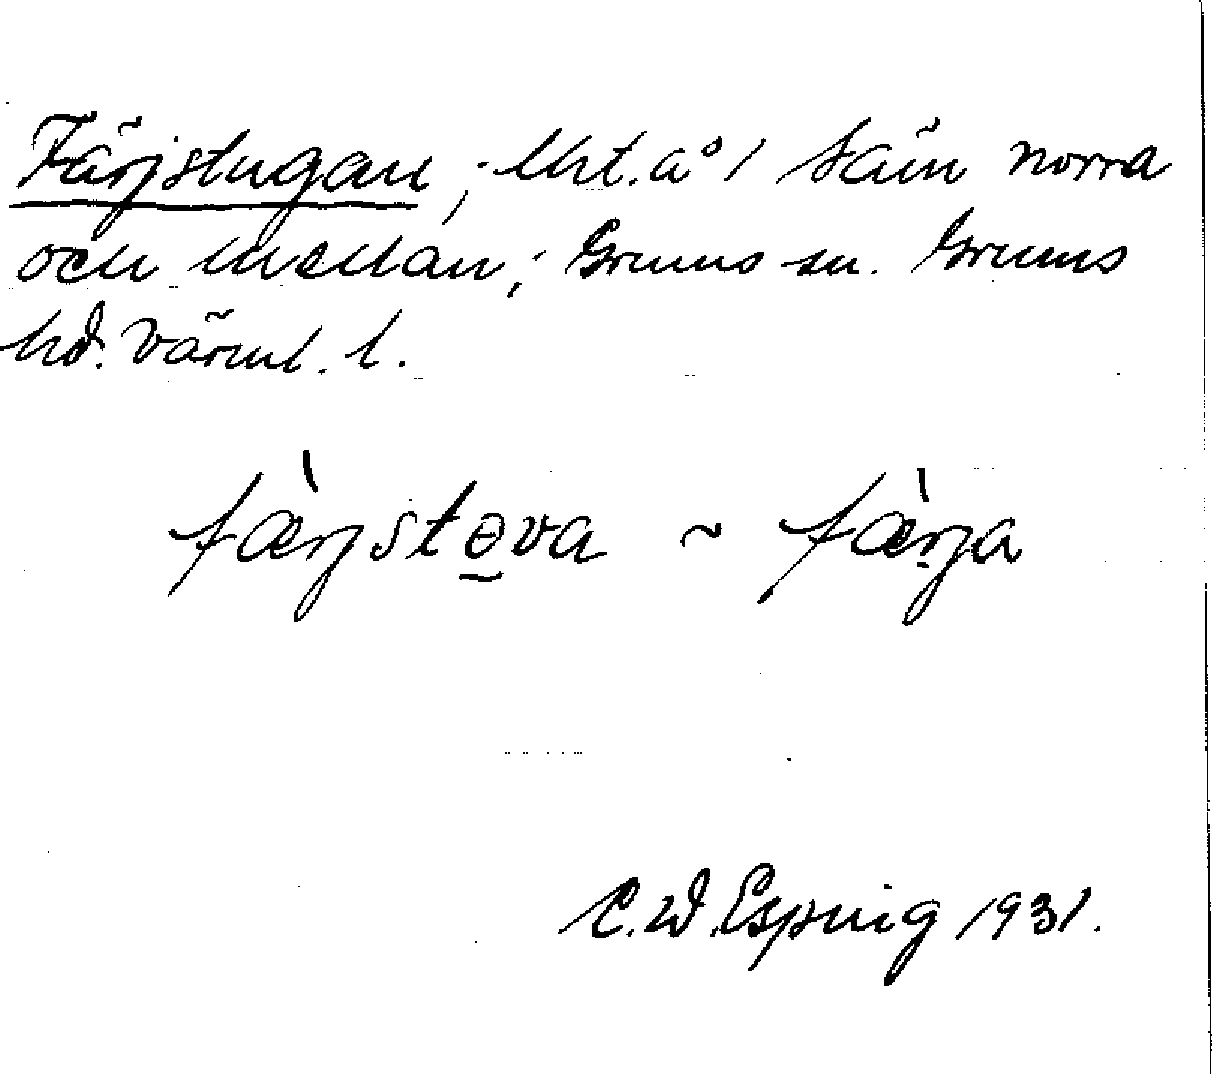 Färjstugan; lht. a° 1 Säin norra
och Mellan; Grums sn. Grums
hd. Värml. l.
fàrjstɵva ~ fàrja
C.W. Esping 1931.